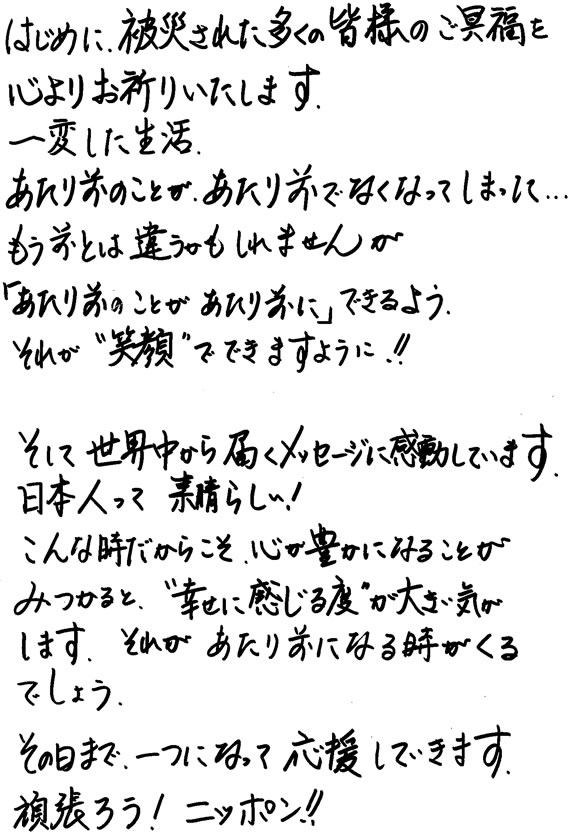 はじめに、被災された多くの皆様のご冥福を
心よりお祈りいたします。
一変した生活。
あたり前のことが、あたり前でなくなってしまって…
もう前とは違うかもしれませんが
「あたり前のことがあたり前に」できるよう。
それが“笑顔”でできますように!!
そして世界中から届くメッセージに感動しています。
日本人って素晴らしい!
こんな時だからこそ、心が豊かになることが
みつかると、“幸せに感じる度”が大きい気が
します。それがあたり前になる時がくる
でしょう。
その日まで、一つになって応援していきます。
頑張ろう!ニッポン!!